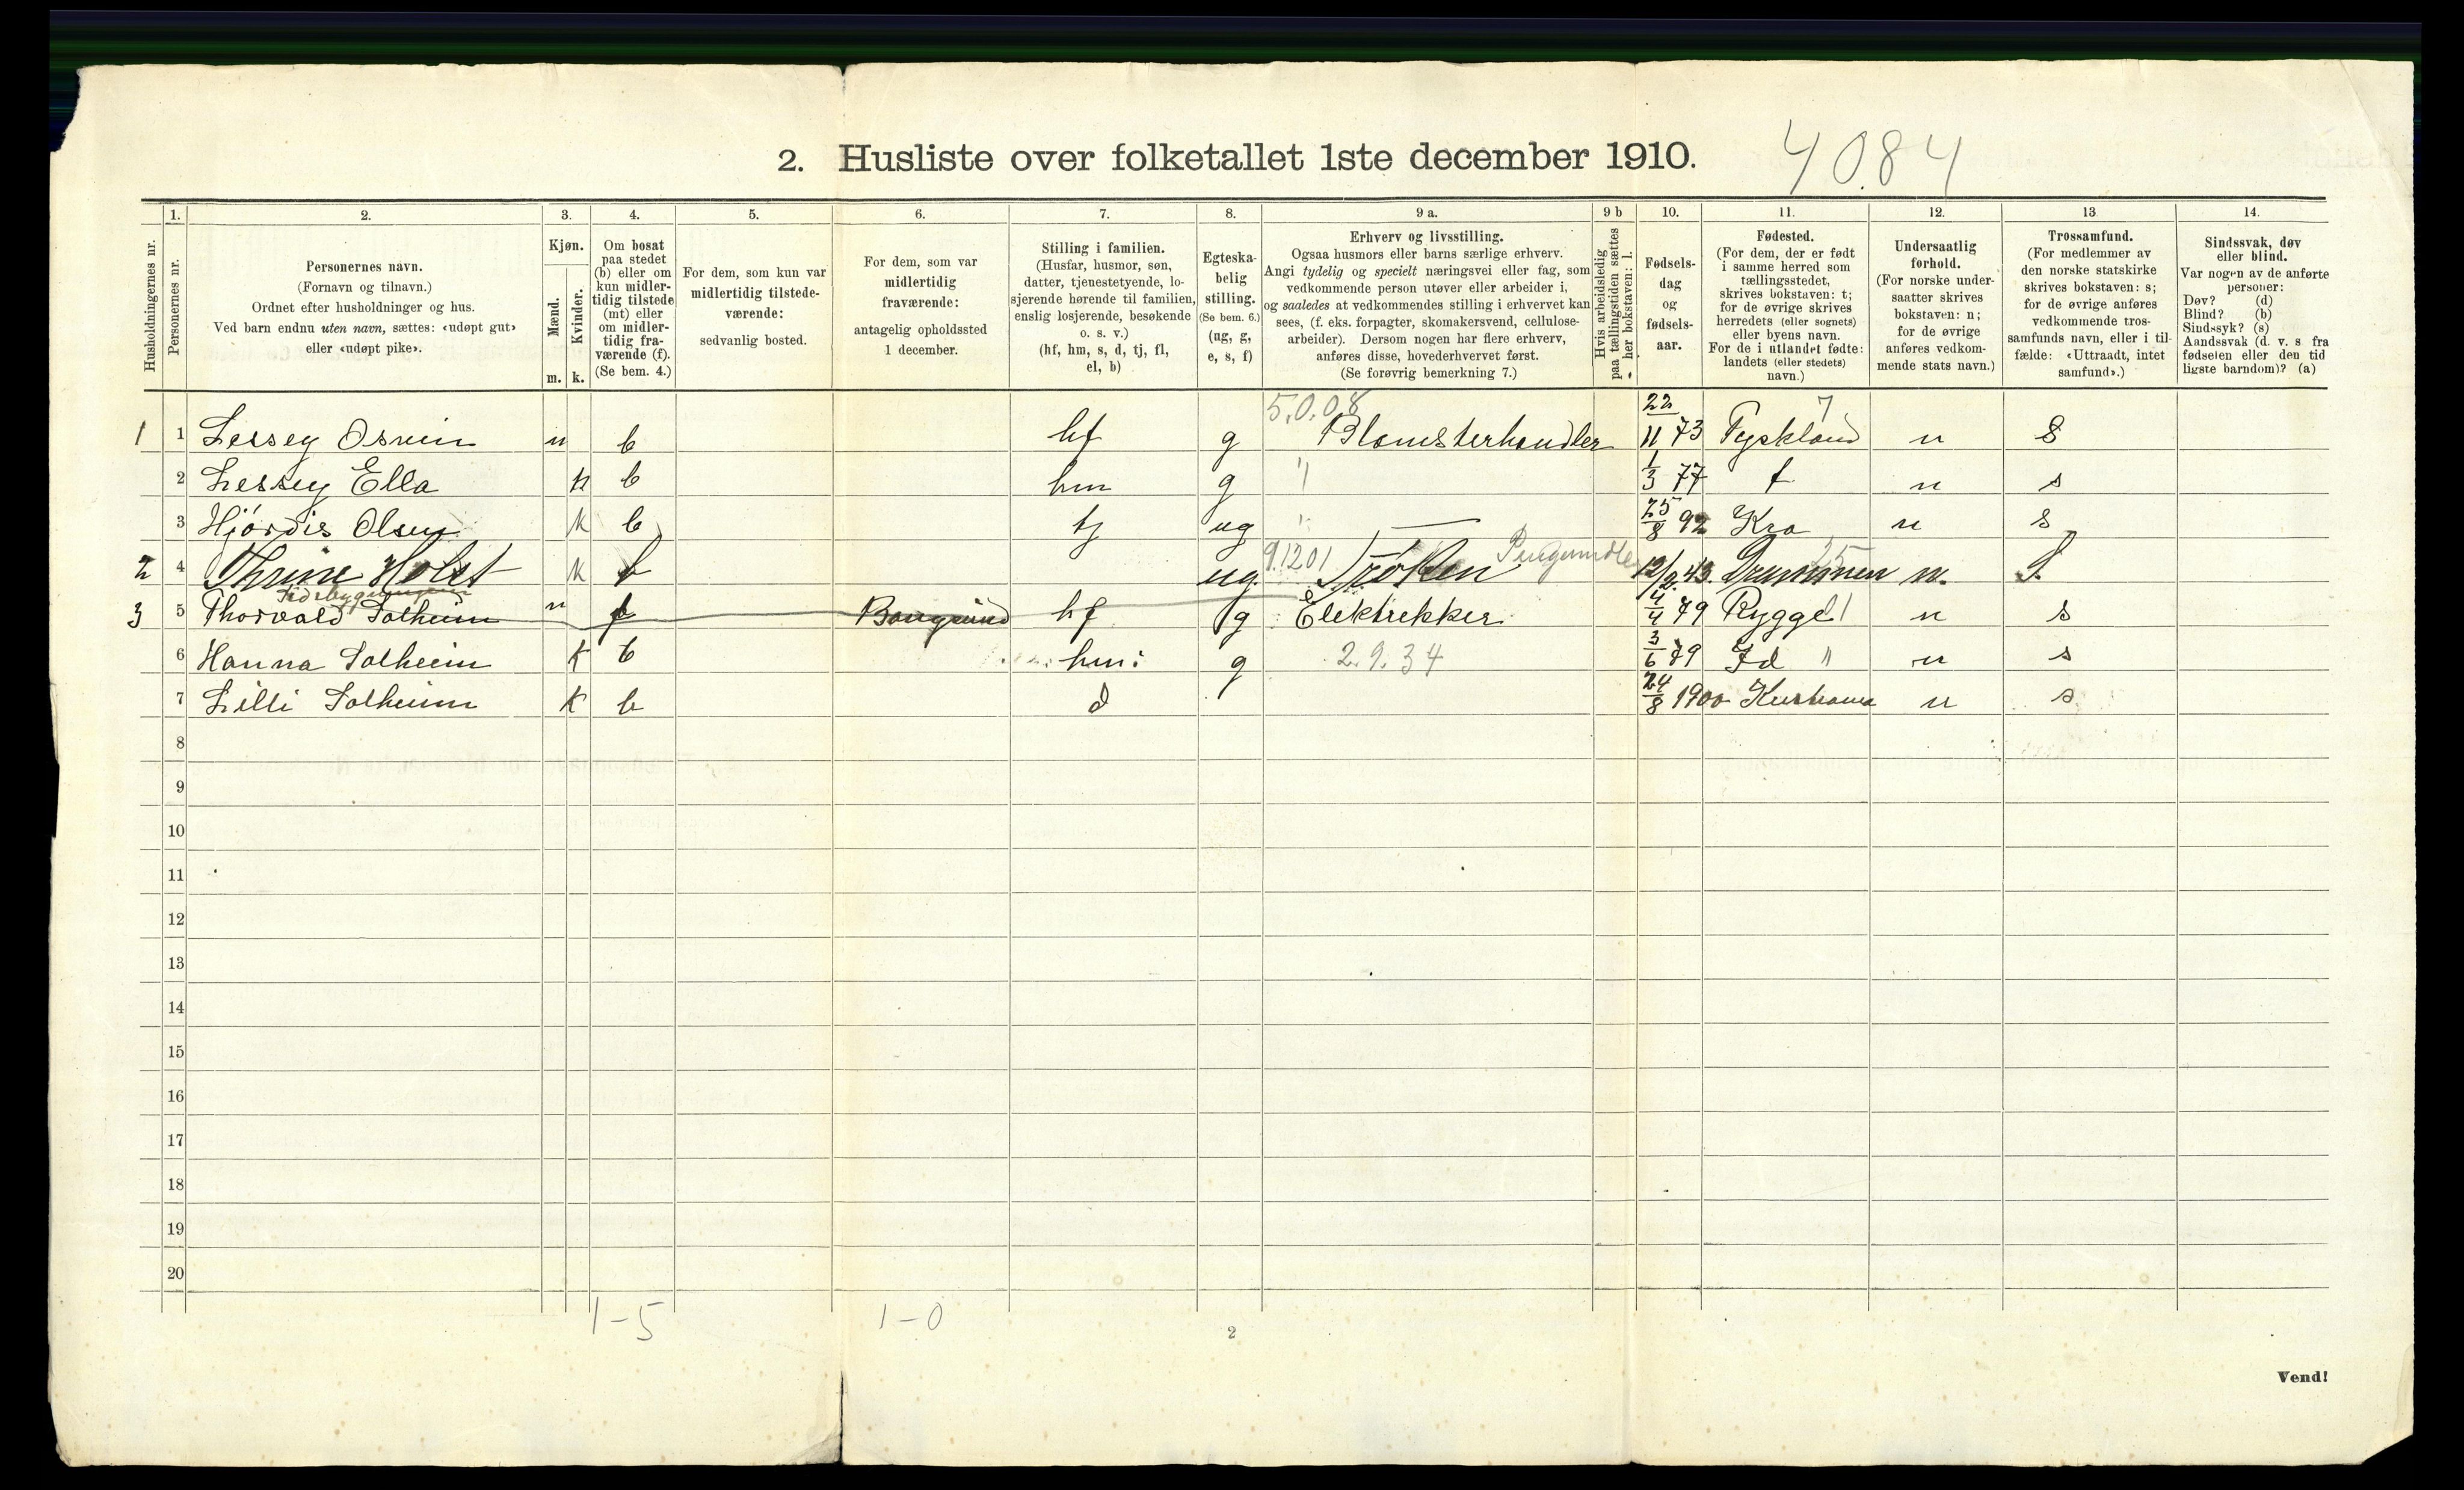 2. Husliste over folketallet 1ste december 1910. 4084
Husholdningernes nr.
1. Personernes nr.
2. Personernes navn. (Fornavn og tilnavn.) Ordnet efter husholdninger og hus. Ved barn endnu uten navn, sættes: «udøpt gut» eller «udøpt pike».
3. Kjøn. Mænd. m. Kvinder. k.
4. Om bosat paa stedet (b) eller om kun midlertidig tilstede (mt) eller om midlertidig fraværende (f). (Se bem. 4.)
5. For dem, som kun var midlertidig tilstedeværende: sedvanlig bosted.
6. For dem, som var midlertidig fraværende: antagelig opholdssted 1 december.
7. Stilling i familien. (Husfar, husmor, søn, datter, tjenestetyende, losjerende hørende til familien, enslig losjerende, besøkende o. s. v.) (hf, hm, s, d, tj, fl, el, b)
8. Egteskabelig stilling. (Se bem. 6.) (ug, g, e, s, f)
9 a. Erhverv og livsstilling. Ogsaa husmors eller barns særlige erhverv. Angi tydelig og specielt næringsvei eller fag, som vedkommende person utøver eller arbeider i, og saaledes at vedkommendes stilling i erhvervet kan sees, (f. eks. forpagter, skomakersvend, cellulosearbeider). Dersom nogen har flere erhverv, anføres disse, hovederhvervet først. (Se forøvrig bemerkning 7.)
9 b Hvis arbeidsledig paa tællingstiden sættes her bokstaven: l.
10. Fødselsdag og fødselsaar.
11. Fødested. (For dem, der er født i samme herred som tællingsstedet, skrives bokstaven: t; for de øvrige skrives herredets (eller sognets) eller byens navn. For de i utlandet fødte: landets (eller stedets) navn.)
12. Undersaatlig forhold. (For norske undersaatter skrives bokstaven: n; for de øvrige anføres vedkommende stats navn.)
13 Trossamfund. (For medlemmer av den norske statskirke skrives bokstaven: s; for de øvrige anføres vedkommende trossamfunds navn, eller i tilfælde: «Uttraadt, intet samfund».)
14. Sindssvak, døv eller blind. Var nogen av de anførte personer: Døv? (d) Blind? (b) Sindssyk? (s) Aandssvak (d. v. s fra fødselen eller den tidligste barndom)? (a)
5.0.08 7
1 1 Lessey Osvin m b hf g Blomsterhandler 22/11 73 Tyskland n S
2 Lessey Ella k b hm g " 1/3 77 t n s
3 Hjördis Olsen k b tj ug " 25/8 92 Kra n s
9.1201 25
2 4 Thrine Holst k b ug. Frøken 12/2 43. Drammen n. S.
3 5 Thorvald Solheim m f hf g Elektrikker 4/4 79 Rygge n s
6 Hanna Solheim k b hm: g 2.9.34 3/6 79 Id " n s
7 Lilli Solheim k b d 24/8 1900 Kristiania n s
8
9
10
11
12
13
14
15
16
17
18
19
20
1-5 1-0
2
Vend!